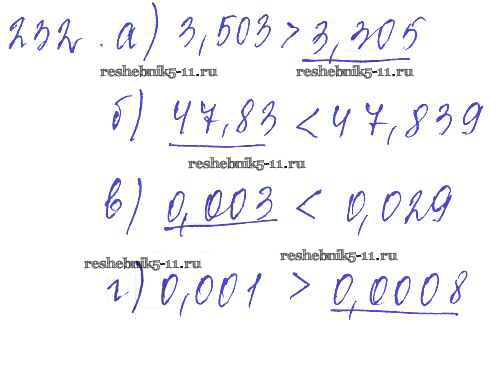 232. а) 3,503 > 3,305
reshebnik5-11.ru reshebnik5-11.ru
б) 47,83 < 47,839
reshebnik5-11.ru
в) 0,003 < 0,029
reshebnik5-11.ru reshebnik5-11.ru
г) 0,001 > 0,0008